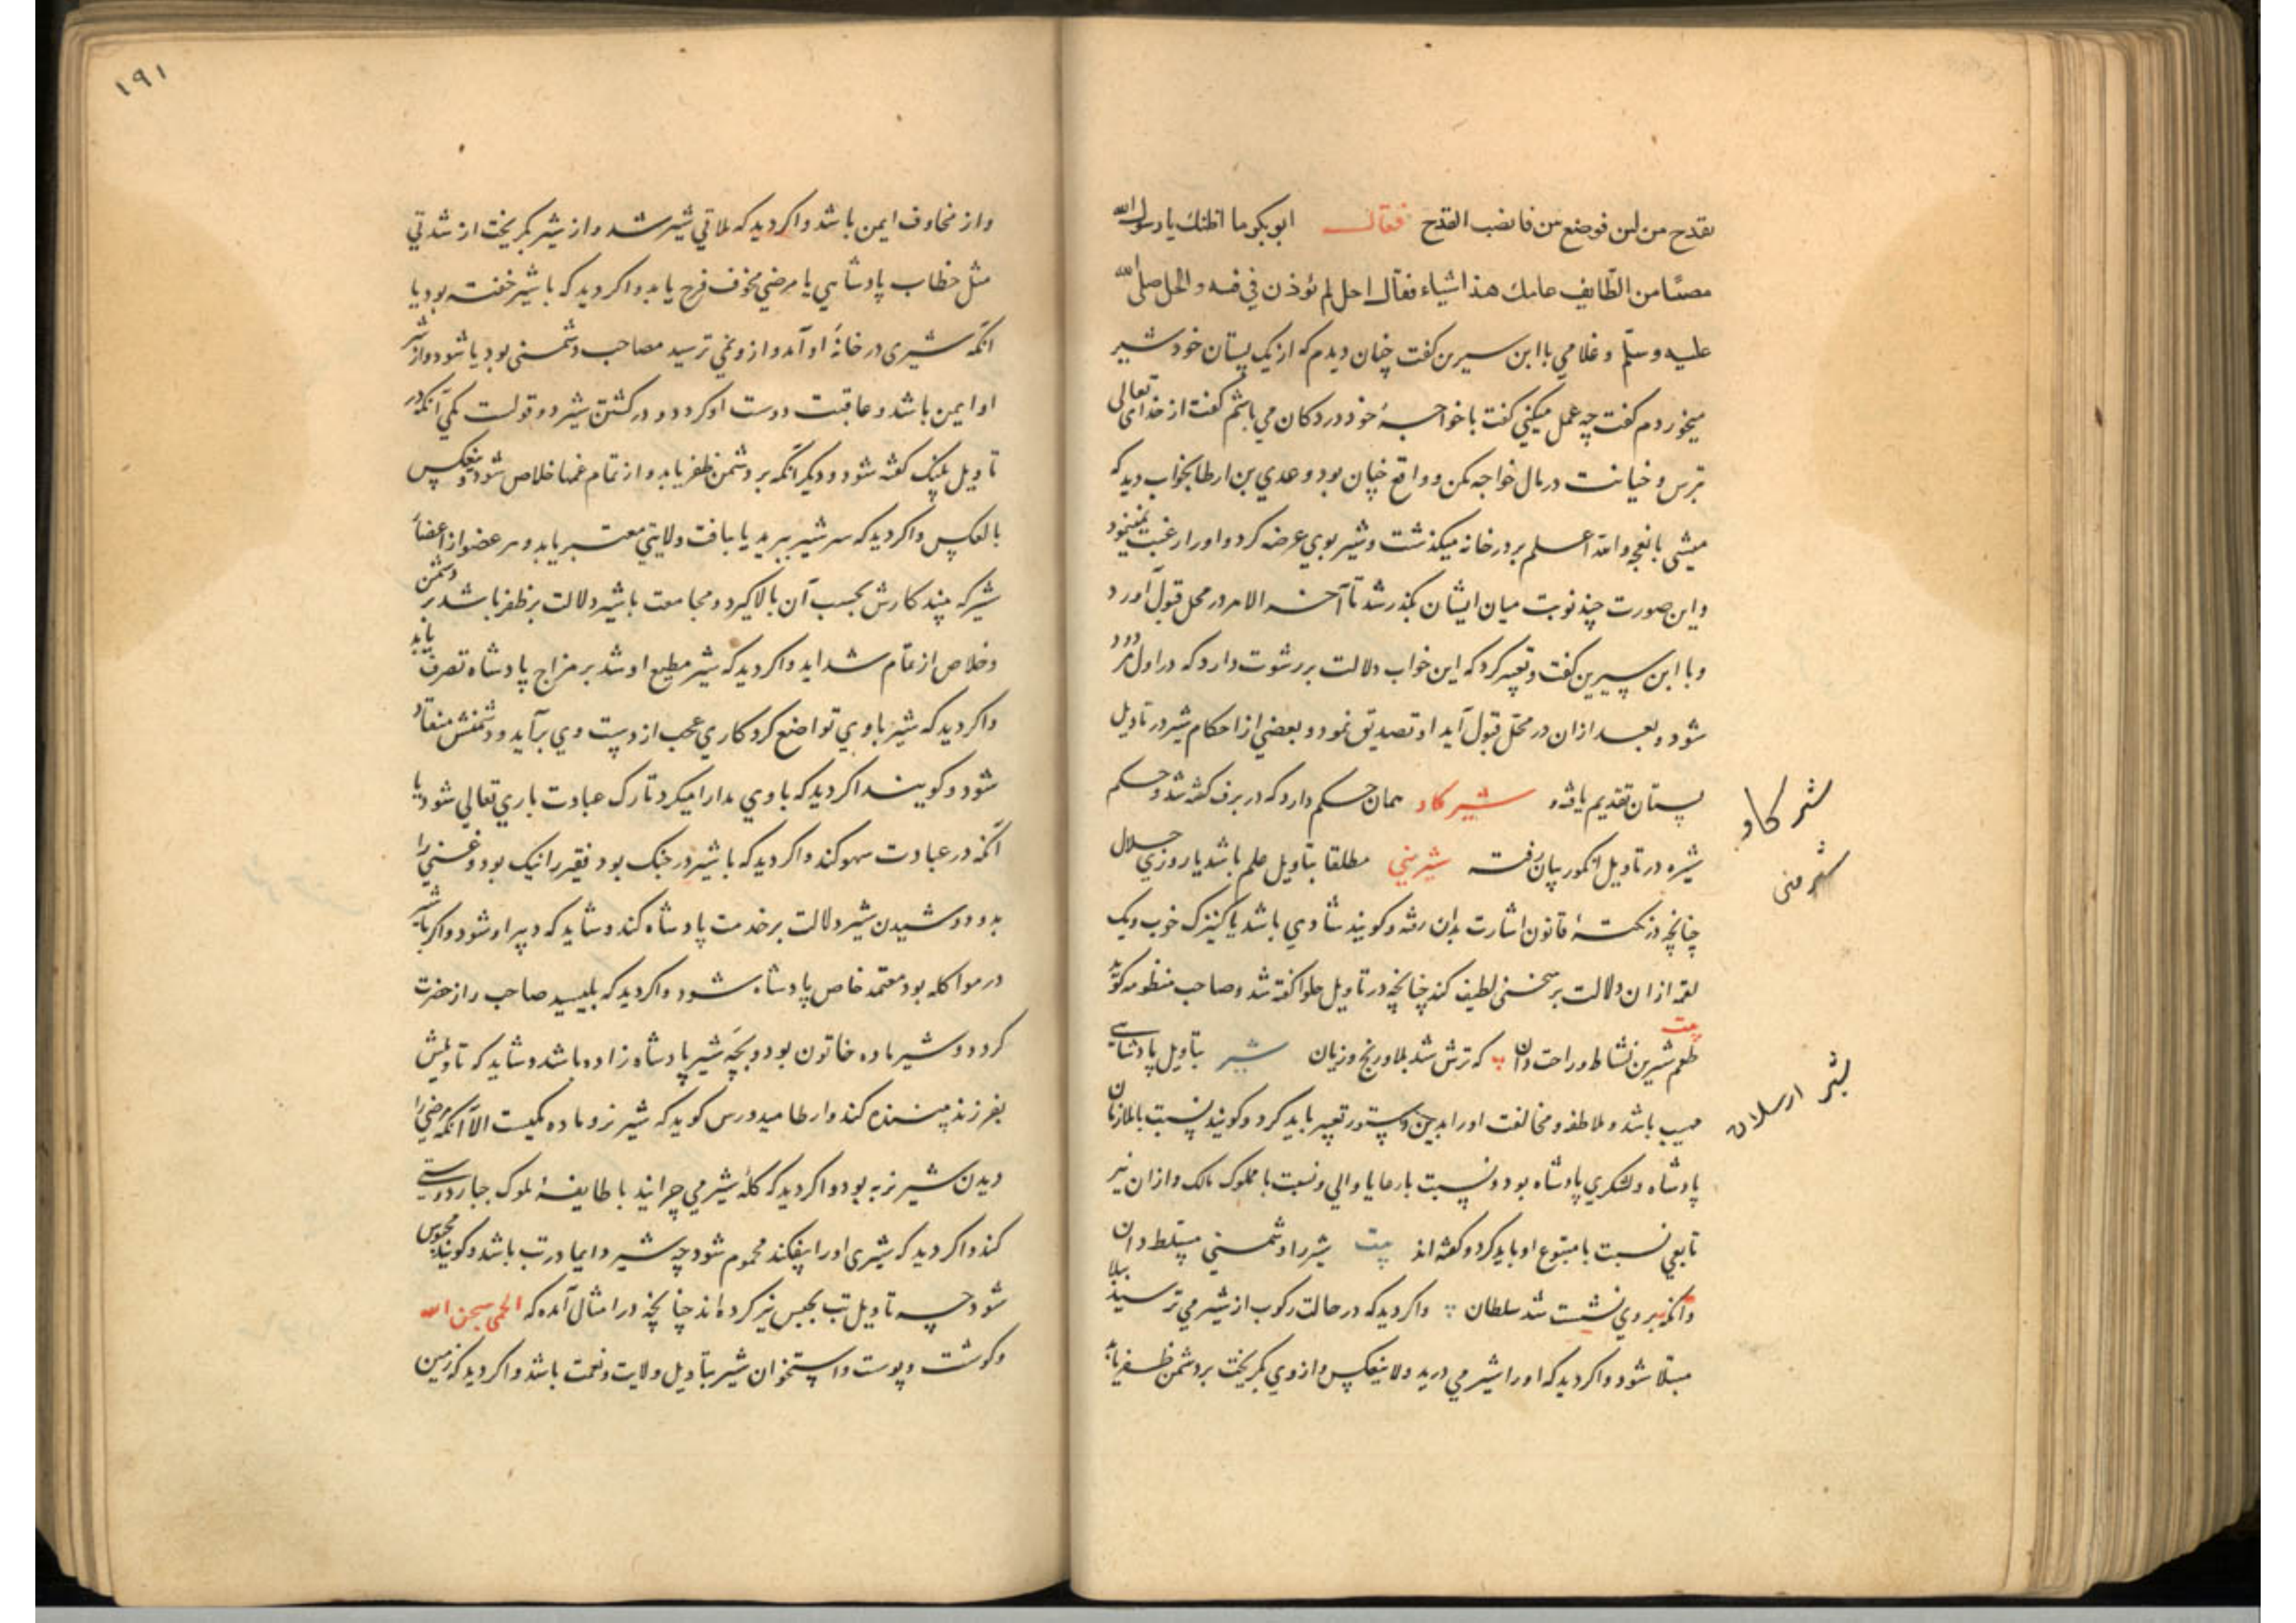 بقدح من لبن فوضع من فانضب القدح فقال ابوبکر ما اظنك یا رسول الله
مصیبا من الطایف عامك هذا شیاء فقال اجل لم یؤذن فی فیه والحل صلی الله
علیه وسلّم و غلامی با ابن سیرین کفت چنان دیدم که از یک پستان خود شیر
میخوردم کفت چه عمل میکنی کفت با خواجهٔ خود در دکان می باشم کفت از خدای تعالی
بترس و خیانت در مال خواجه مکن و واقع چنان بود و عدی بن ارطا بخواب دید که
میشی یا نعجه والله اعلم بر در خانه میکذشت و شیر بوی عرضه کرد و او را رغبت نمینمود
و این صورت چند نوبت میان ایشان بکذر شد تا آخر الامر در محل قبول آورد
و با ابن سیرین کفت و تعبیر کرد که این خواب دلالت بر رشوت دارد که در اول مردود
شود و بعد از ان در محل قبول آید او تصدیق نمود و بعضی از احکام شیر در تاویل
پستان تقدیم یافته و شیر کاو همان حکم دارد که در برف کفته شد و حکم
شیره در تاویل انکور بیان رفت شیرینی مطلقا بتاویل علم باشد یا روزی حلال
چنانچه در نکتهٔ قانون اشارت بدان رفته و کویند شادی باشد یا کنیزک خوب و یک
لقمه از ان دلالت بر سخنی لطیف کند چنانچه در تاویل حلوا کفته شد و صاحب منظومه کوید
بیت
طعم شیرین نشاط و راحت دان که ترش شد بلا و رنج و زیان شیر بتاویل پادشاهی
مهیب باشد و ملاطفه و مخالفت او را بدین دستور تعبیر باید کرد و کویند نسبت با ملازمان
پادشاه و لشکری پادشاه بود و نسبت با رعایا والی و نسبت با مملوک مالک و از ان نیز
تابعی نسبت با متبوع او باید کرد و کفته اند بیت شیر را دشمنی مسلط دان
وانکه بر وی نشست شد سلطان واکر دید که در حالت رکوب از شیر می ترسید ببلا
مبتلا شود واکر دید که او را شیر می درید ولا ینعکس و از وی بکریخت بر دشمن ظفر یابد
شیر کاو
شیرینی
شیر ارسلان
۱۹۱
و از مخاوف ایمن باشد واکر دید که ملاقی شیر شد و از شیر بکریخت از شدتی
مثل خطاب پادشاهی یا مرضی مخوف فرح یابد واکر دید که با شیر خفته بود یا
آنکه شیری در خانهٔ او آمد و از و نمی ترسید مصاحب دشمنی بود یا شود و از شر
او ایمن باشد و عاقبت دوست او کردد و در کشتن شیر دو قولست یکی آنکه در
تاویل پلنک کفته شود و دیکر آنکه بر دشمن ظفر یابد و از تمام غمها خلاص شود و ینعکس
بالعکس واکر دید که سر شیر ببرید یا بیافت ولایتی معتبر یابد و هر عضو از اعضاء
شیر که بیند کارش بحسب آن بالا کیرد و مجامعت با شیر دلالت بر ظفر باشد بر دشمن
و خلاص از تمام شداید واکر دید که شیر مطیع او شد بر مزاج پادشاه تصرف یابد
واکر دید که شیر با وی تواضع کرد کاری عجب از دست وی برآید و دشمنش منقاد
شود و کویند اکر دید که با وی مدارا میکرد تارک عبادت باری تعالی شود یا
آنکه در عبادت سهو کند واکر دید که با شیر در جنک بود فقیر را نیک بود و غنی را
بد و دوشیدن شیر دلالت بر خدمت پادشاه کند و شاید که دبیر او شود واکر با شیر
در مواکله بود معتمد خاص پادشاه شود واکر دید که بلیسید صاحب راز حضرت
کردد و شیر ماده خاتون بود و بچهٔ شیر پادشاه زاده باشد و شاید که تاویلش
بفرزند پسندیده کند و ارطامیدورس کوید که شیر نر و ماده یکیست الا آنکه مرضی را
دیدن شیر نر به بود واکر دید که کلهٔ شیر می چرانید با طایفهٔ ملوک جبار دوستی
کند واکر دید که شیری او را بیفکند محموم شود چه شیر دایما در تب باشد و کویند محبوس
شود چه تاویل تب بحبس نیز کرده اند چنانچه در امثال آمده که الحمی سجن الله
و کوشت و پوست و استخوان شیر بتاویل ولایت و نعمت باشد واکر دید که زمین